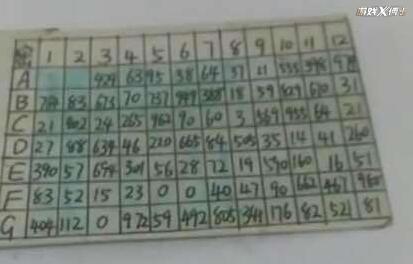 游戏X博
1 2 3 4 5 6 7 8 9 10 11 12
A 424 6395 38 64 37 11 535
B 83 673 70 737 18 59 809 610 31
C 21 902 24 265 962 90 60 3 369 955 64 21
D 27 88 639 46 220 665 84 505 35 14 41 260
E 390 57 694 301 56 28 72 19 590 160 16 51
F 83 52 15 23 0 0 40 47 90 662 467 980
G 404 112 0 972 59 492 805 344 176 82 521 81